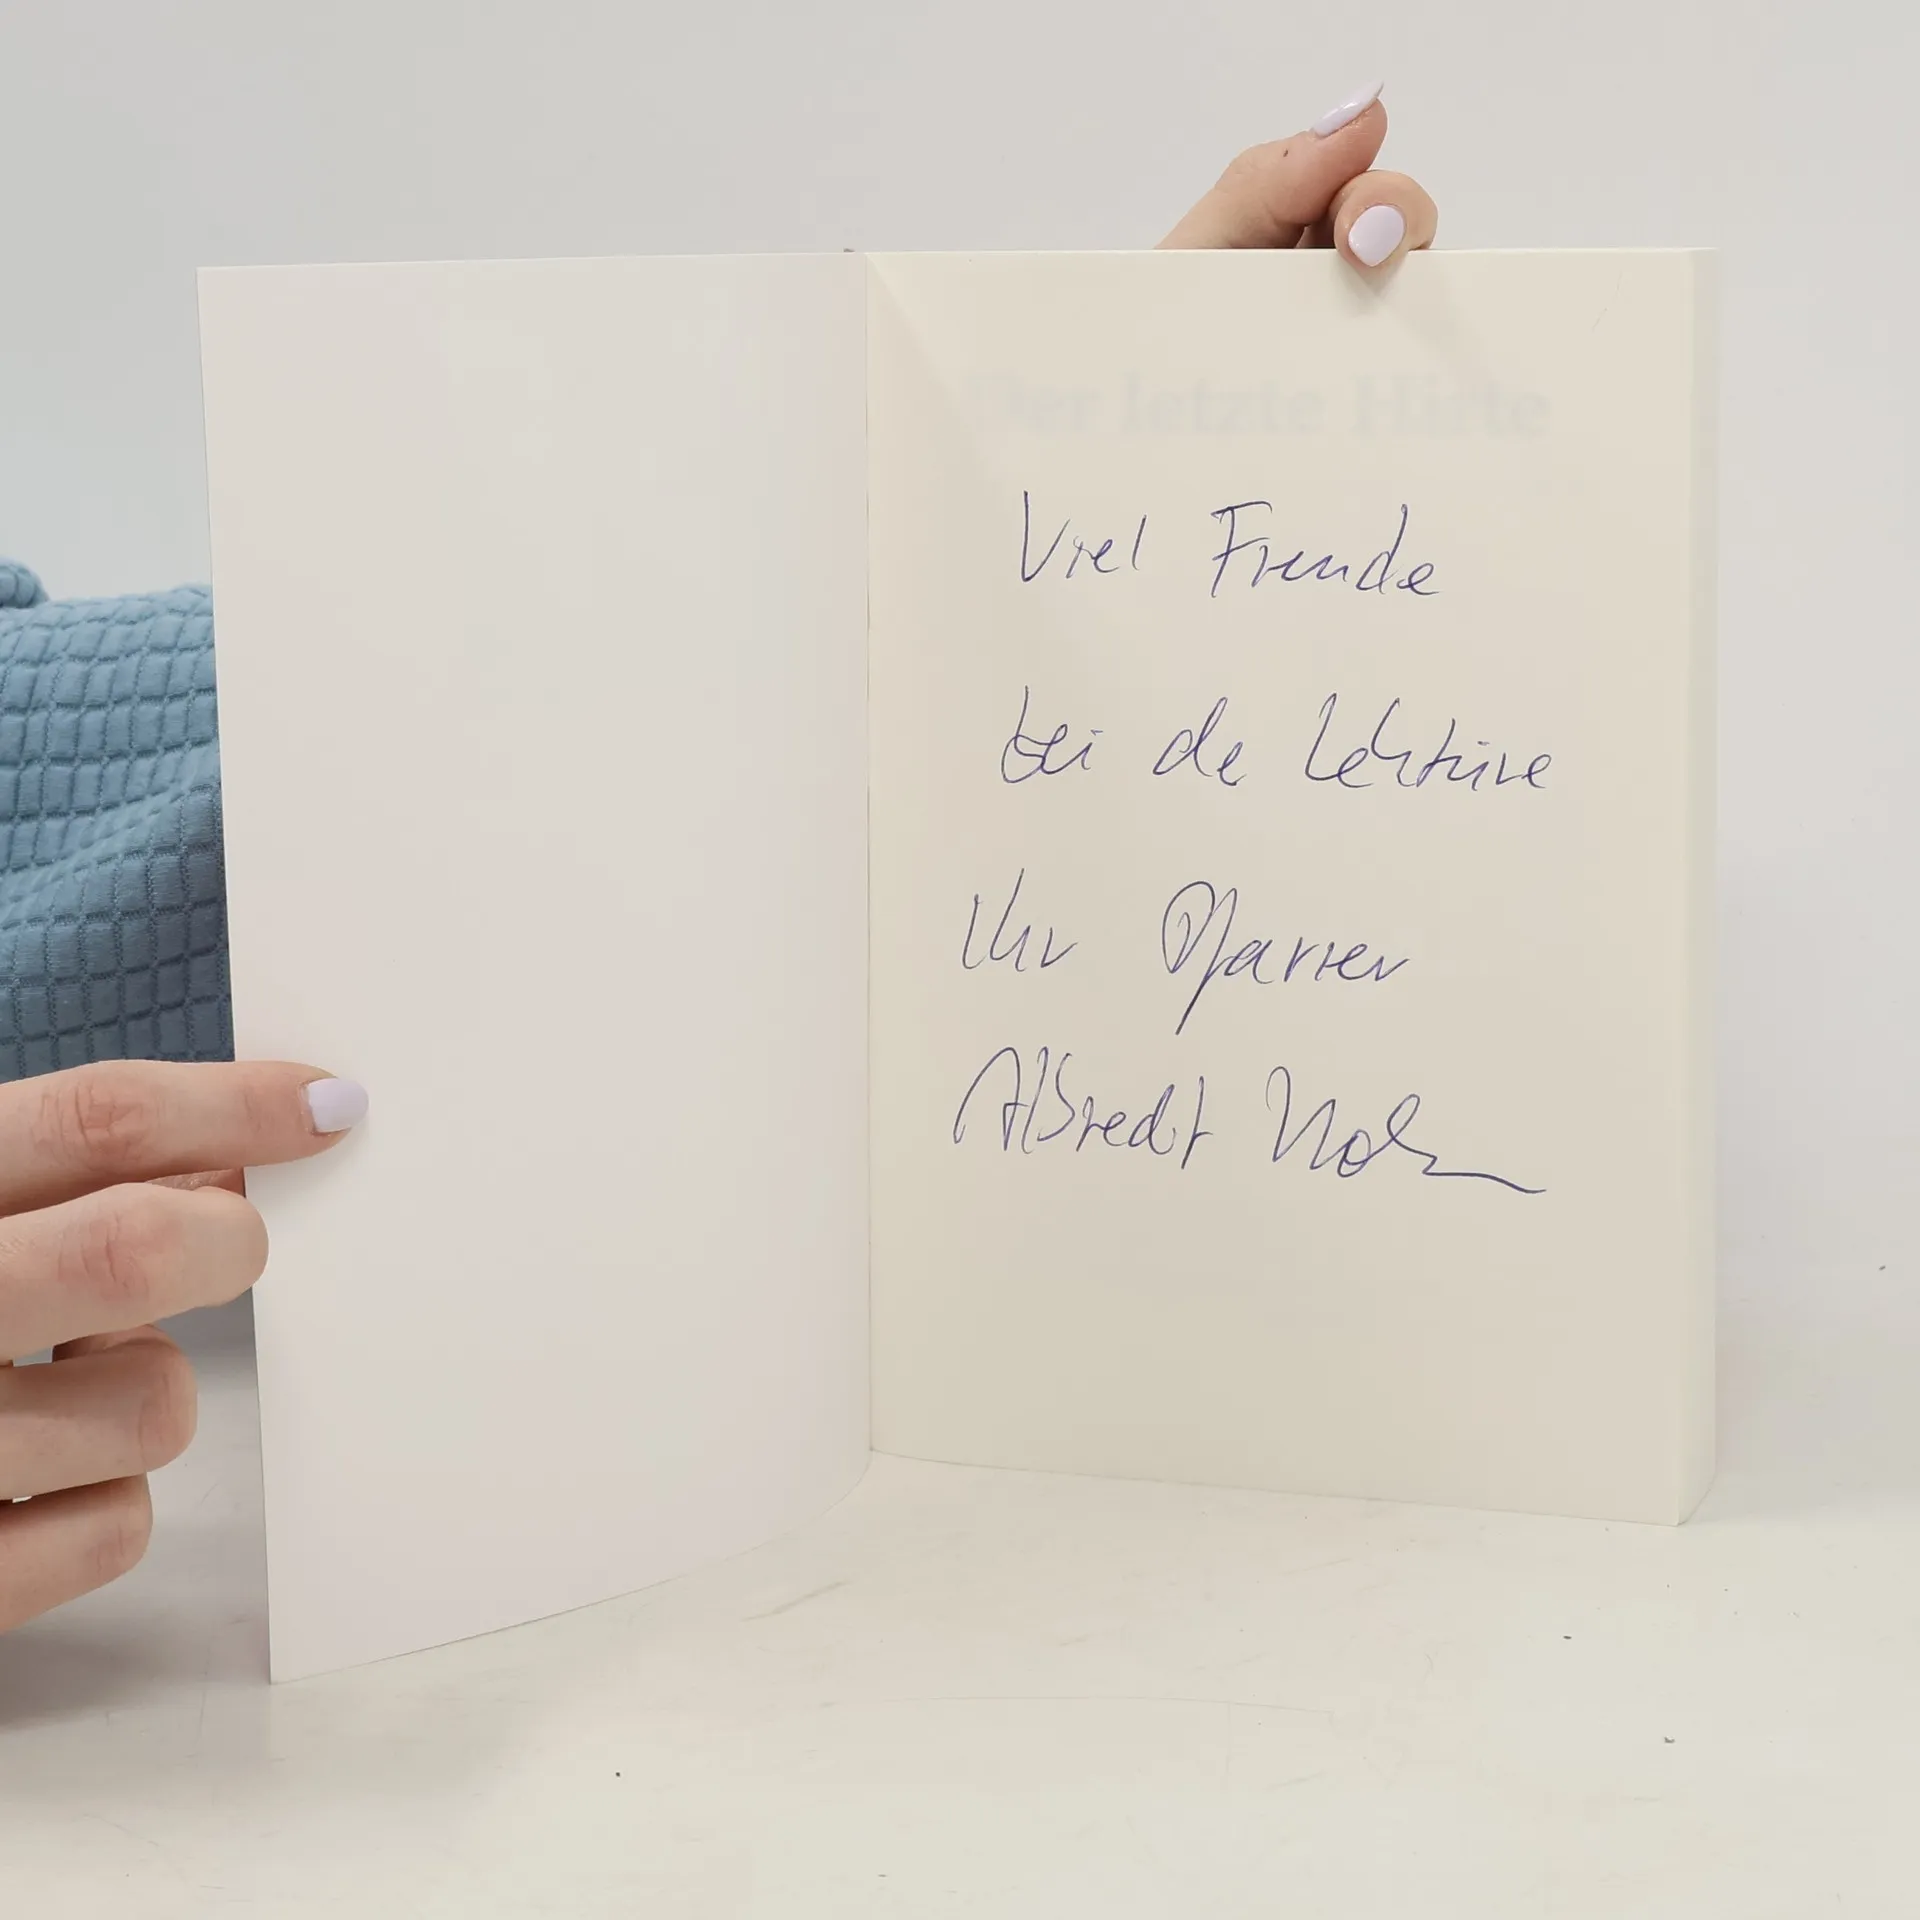 Der letzte Hirte
Viel Freude
bei der Lektüre
Ihr Pfarrer
Albrecht